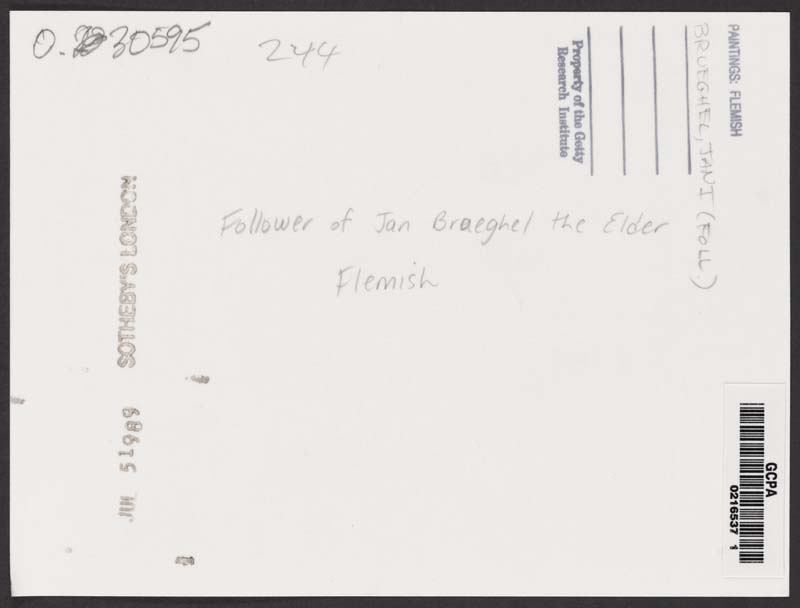 O. 30595
244
PAINTINGS: FLEMISH
BRUEGHEL, JAN I (FOLL.)
Property of the Getty
Research Institute
Follower of Jan Brueghel the Elder
Flemish
SOTHEBYS LONDON
JUL 51989
GCPA
0216537 1